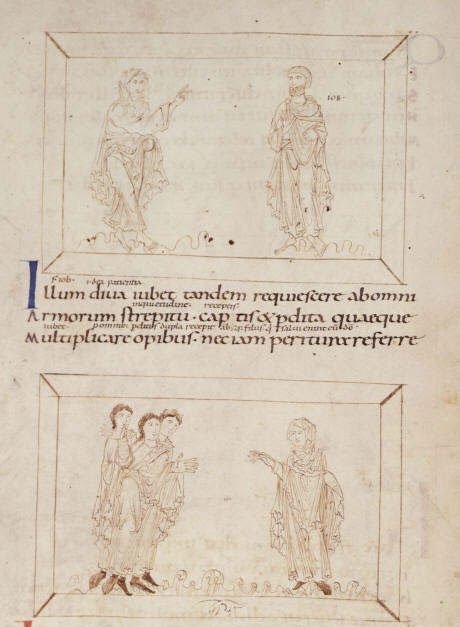 IOB·
s· iob· ·i· dea patientia
Illum diua iubet tandem requiescere abomni
inquietudine· receptis
Armorum strepitu· cap tis & p̱dita quaeque
iubet· dupla recepit absq; filiis
Multiplicare opibus· nec iam peritura referre